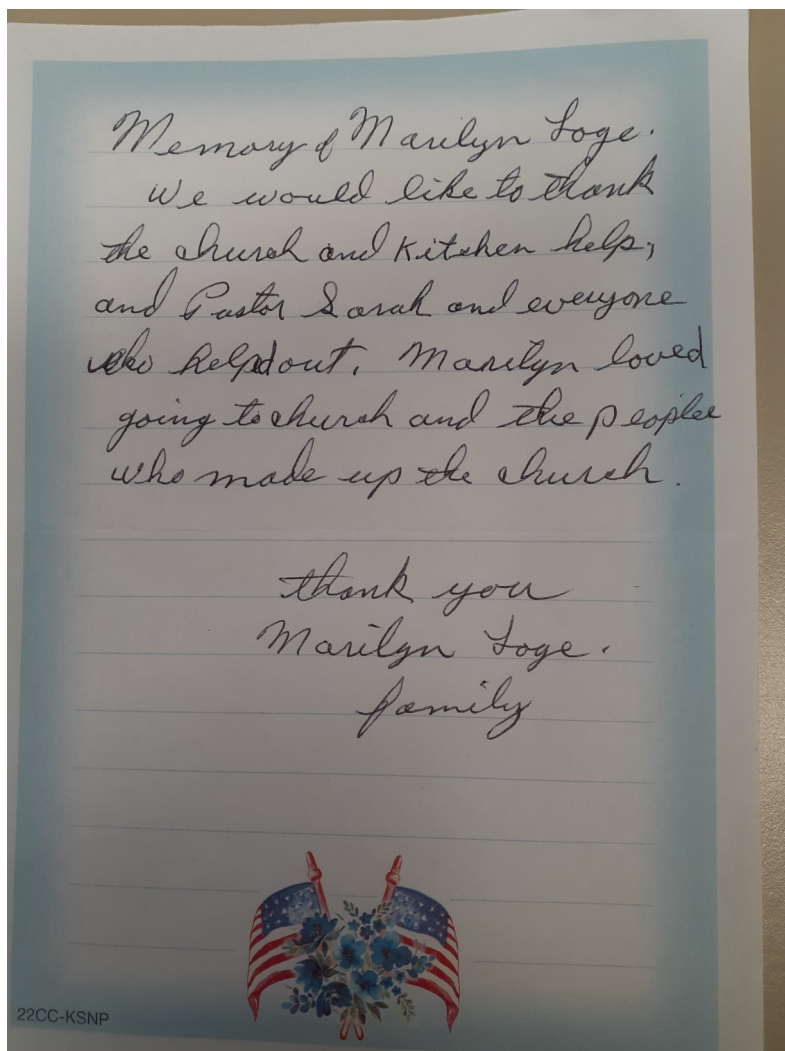 Memory of Marilyn Loge.
We would like to thank
the church and Kitchen help,
and Pastor Sarah and everyone
who helpd out. Marilyn loved
going to church and the people
who made up the church.
thank you
Marilyn Loge.
family
22CC-KSNP